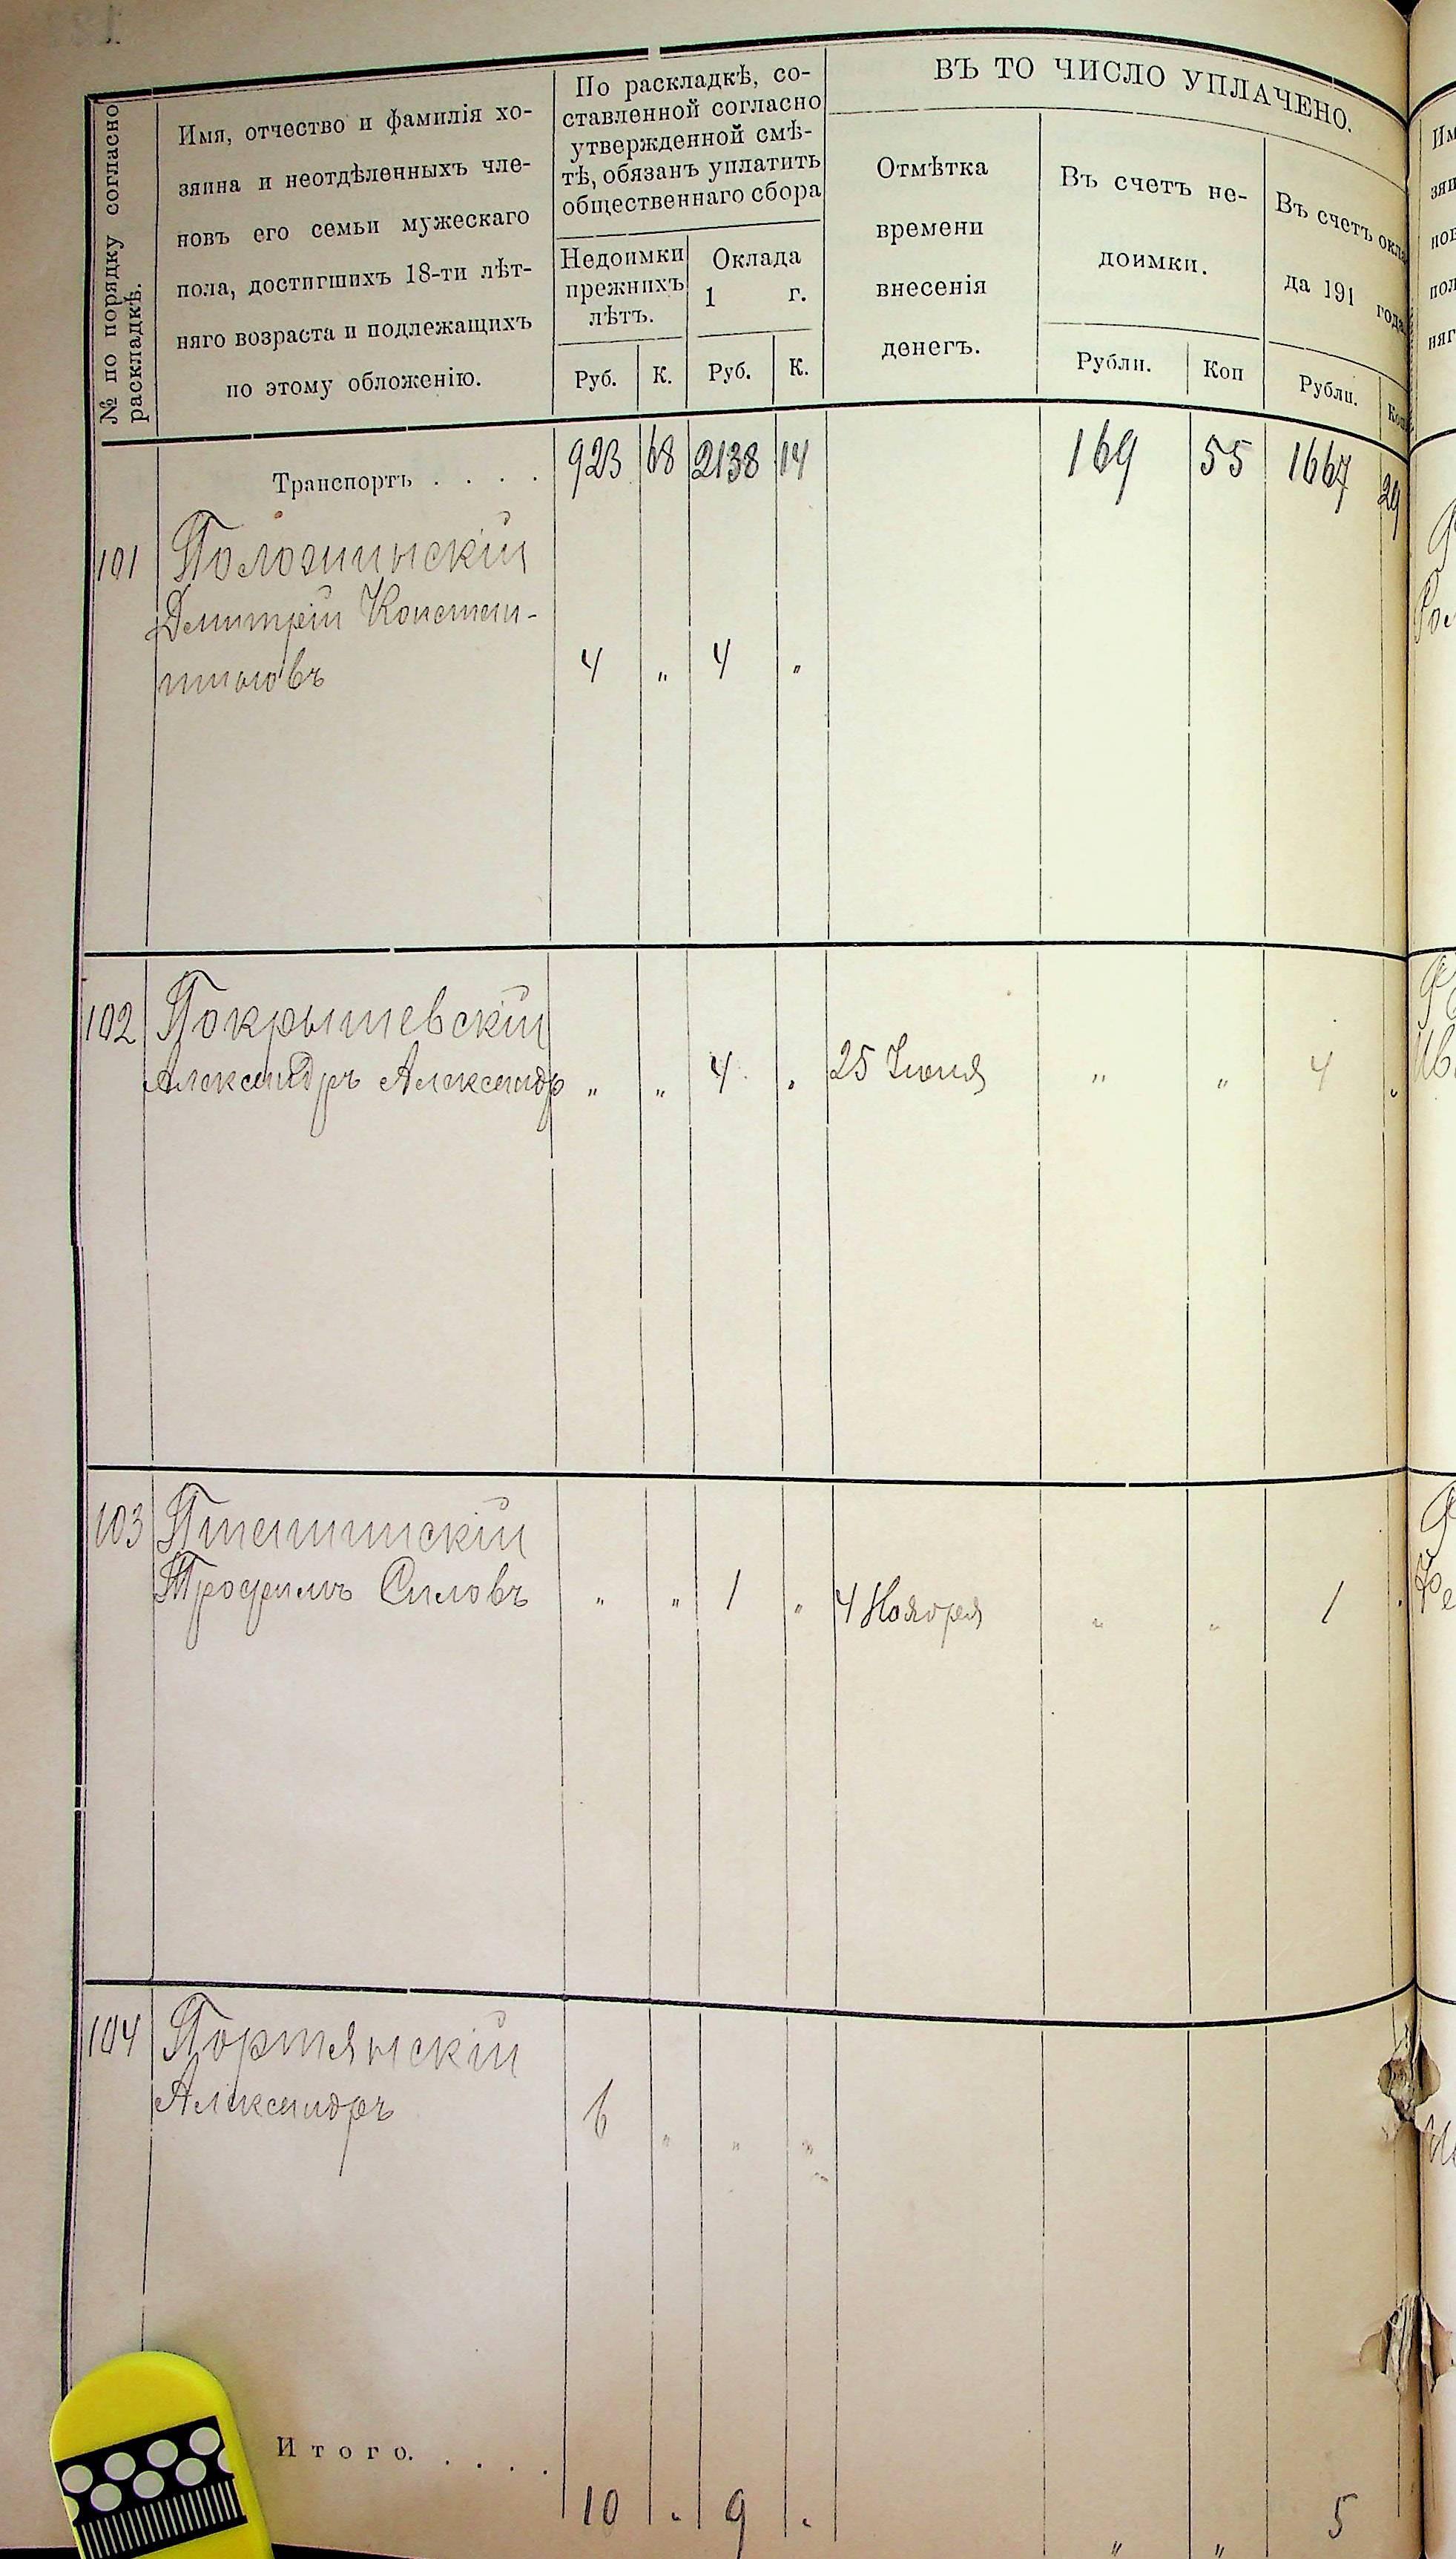 № по порядку согласно
раскладкѣ.
Имя, отчество и фамилія хо-
зяина и неотдѣленныхъ чле-
новъ его семьи мужескаго
пола, достигшихъ 18-ти лѣт-
няго возраста и подлежащихъ
по этому обложенію.
По раскладкѣ, со-
ставленной согласно
утвержденной смѣ-
тѣ, обязанъ уплатить
общественнаго сбора
Недоимки
прежнихъ
лѣтъ.
Оклада
1 г.
Руб. К. Руб. К.
ВЪ ТО ЧИСЛО УПЛАЧЕНО.
Отмѣтка
времени
внесенія
денегъ.
Въ счетъ не-
доимки.
Рубли. Коп
Въ счетъ окла
да 191 года
Рубли. Коп
Транспортъ . . . . 923 68 2138 14 169 55 1667 29
101 Положинскій
Дмитрій Констан-
тиновъ 4 „ 4 „
102 Покрышевскій
Александръ Александр „ „ 4 „ 25 Іюня „ „ 4 „
103 Пташинскій
Трофимъ Силовъ „ „ 1 „ 4 Ноября „ „ 1 „
104 Портянскій
Александръ 6 „ „ „
Итого. . . . . 10 „ 9 „ „ „ 5